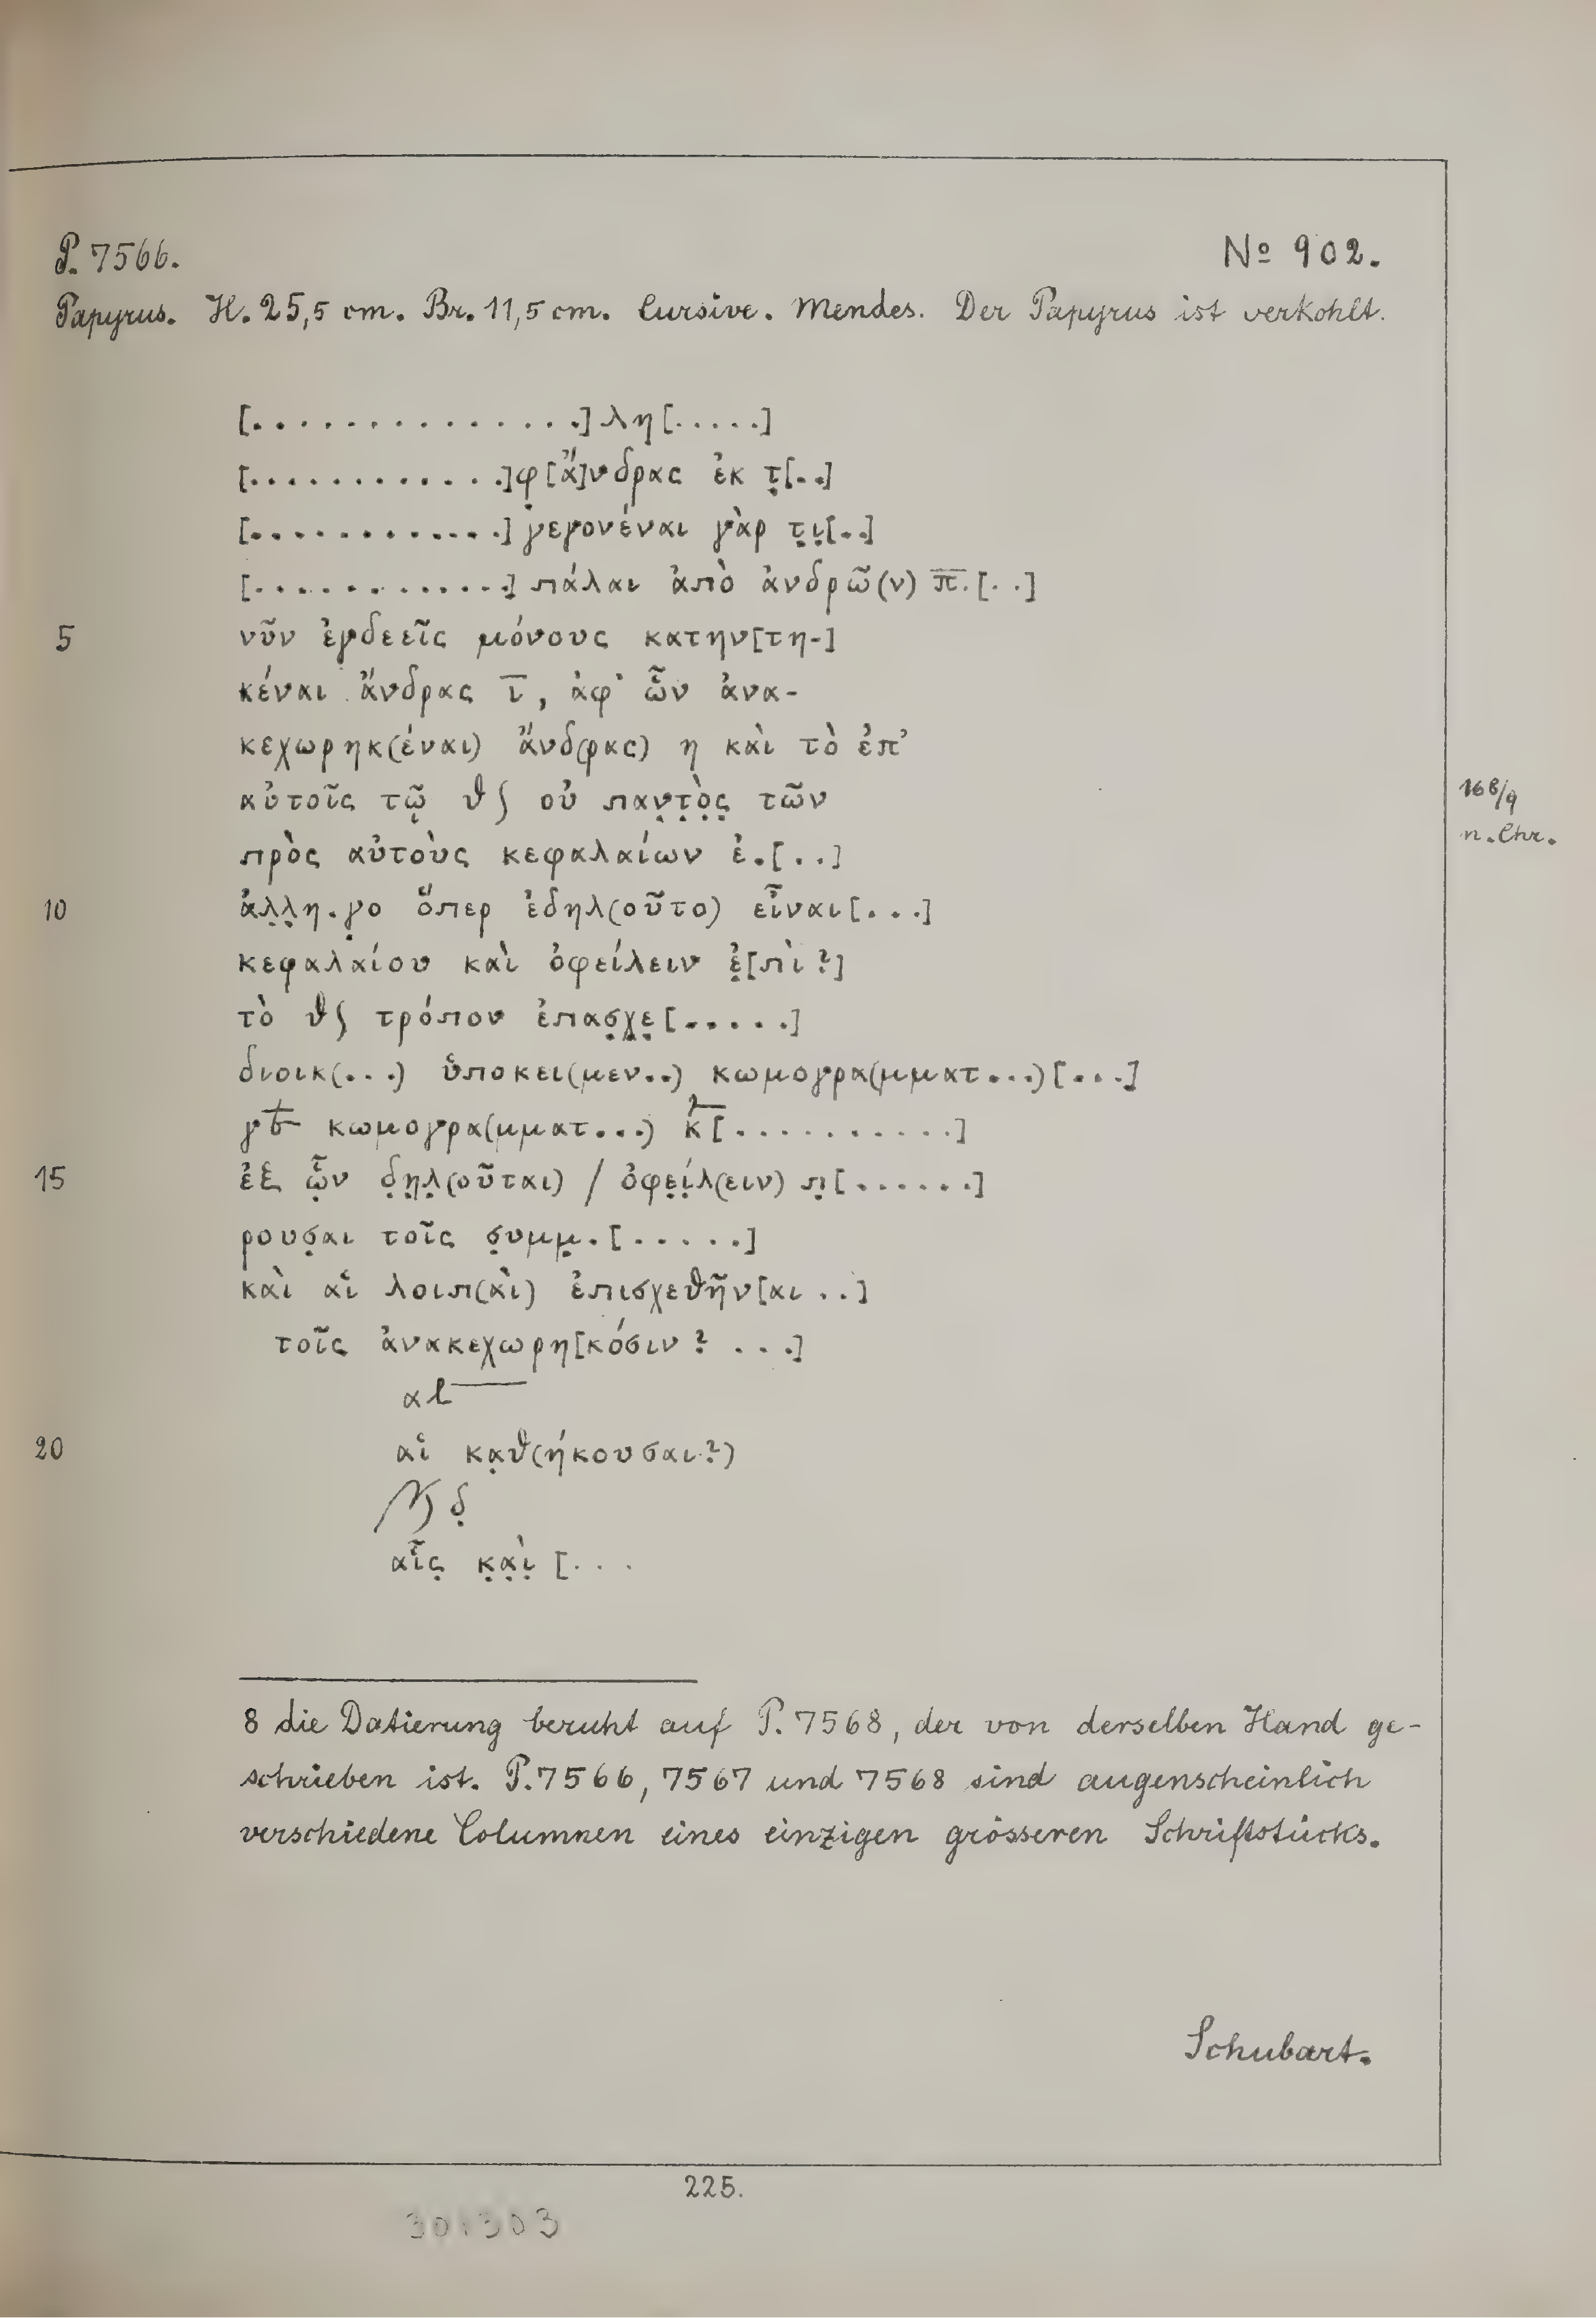 P. 7566. № 902.
Papyrus. H. 25,5 cm. Br. 11,5 cm. Cursive. Mendes. Der Papyrus ist verkohlt.
[. . . . . . . . . . . . . .] λη[. . . . .]
[. . . . . . . . . . . .]φ̣[ἄ]νδρας ἐκ τ̣[. .]
[. . . . . . . . . . . .] γεγονέναι γὰρ τ̣ι̣[. .]
[. . . . . . . . . . . .] πάλαι ἀπὸ ἀνδρῶ(ν) π̅.[. .]
5 νῦν ἐγδεεῖς μόνους κατην[τη-]
κέναι ἄνδρας ι̅, ἀφ' ὧν ἀνα-
κεχωρηκ(έναι) ἄνδ(ρας) η καὶ τὸ ἐπ'
αὐτοῖς τῷ θ∫ οὐ παν̣τ̣ὸ̣ς̣ τῶν
168/9
n. Chr.
πρὸς αὐτοὺς κεφαλαίων ἐ.[. .]
10 ἀλ̣λ̣η.γ̣ο ὅπερ ἐδηλ(οῦτο) εἶναι[. . .]
κεφαλαίου καὶ ὀφείλειν ἐ̣[πὶ ?]
τὸ θ∫ τρόπον ἐπασ̣χ̣ε̣[. . . . .]
διοικ(. . .) ὑποκει(μεν..) κωμογρα(μματ...)[. . .]
κωμογρα(μματ...) κ̅[. . . . . . . . . .]
15 ἐξ ὧ̣ν δ̣η̣λ̣(οῦται) / ὀφε̣ί̣λ(ειν) π̣[. . . . . .]
ρουσ̣αι τοῖς σ̣υμμ̣.[. . . . .]
καὶ αἱ λοιπ(αὶ) ἐπισχεθῆν[αι . .]
τοῖς ἀνακεχωρη[κόσιν ? . . .]
20 αἱ κα̣θ(ήκουσαι ?)
δ̣
αἷς̣ κ̣α̣ὶ̣ [. . .
8 die Datierung beruht auf P. 7568, der von derselben Hand ge-
schrieben ist. P. 7566, 7567 und 7568 sind augenscheinlich
verschiedene Columnen eines einzigen grösseren Schriftstücks.
Schubart.
225.
301303